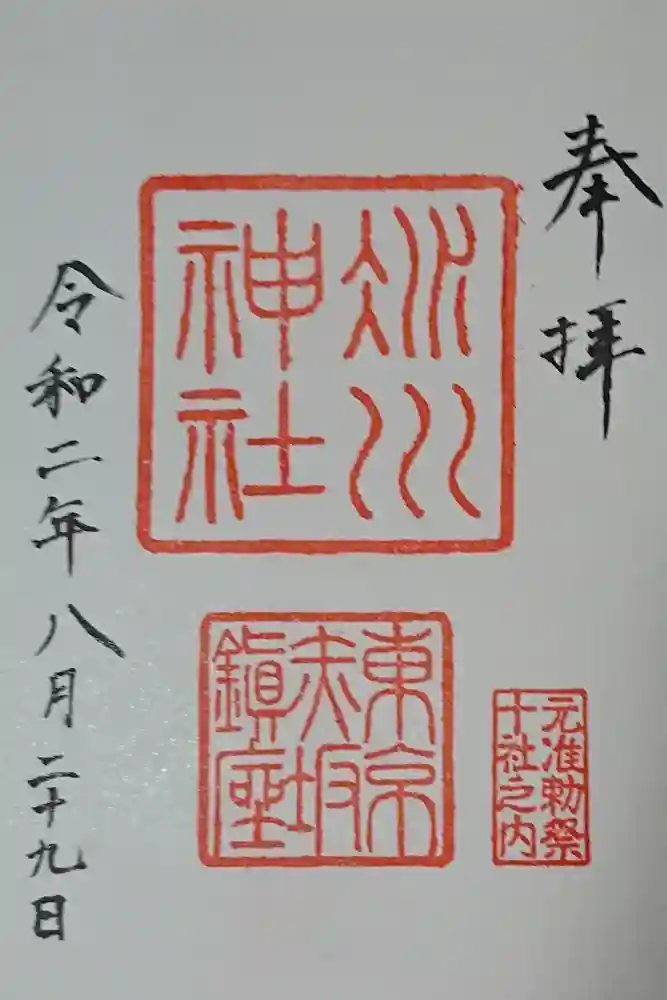 奉拝
氷川
神社
東京
赤坂
鎭座
元准勅祭
十社之内
令和二年八月二十九日